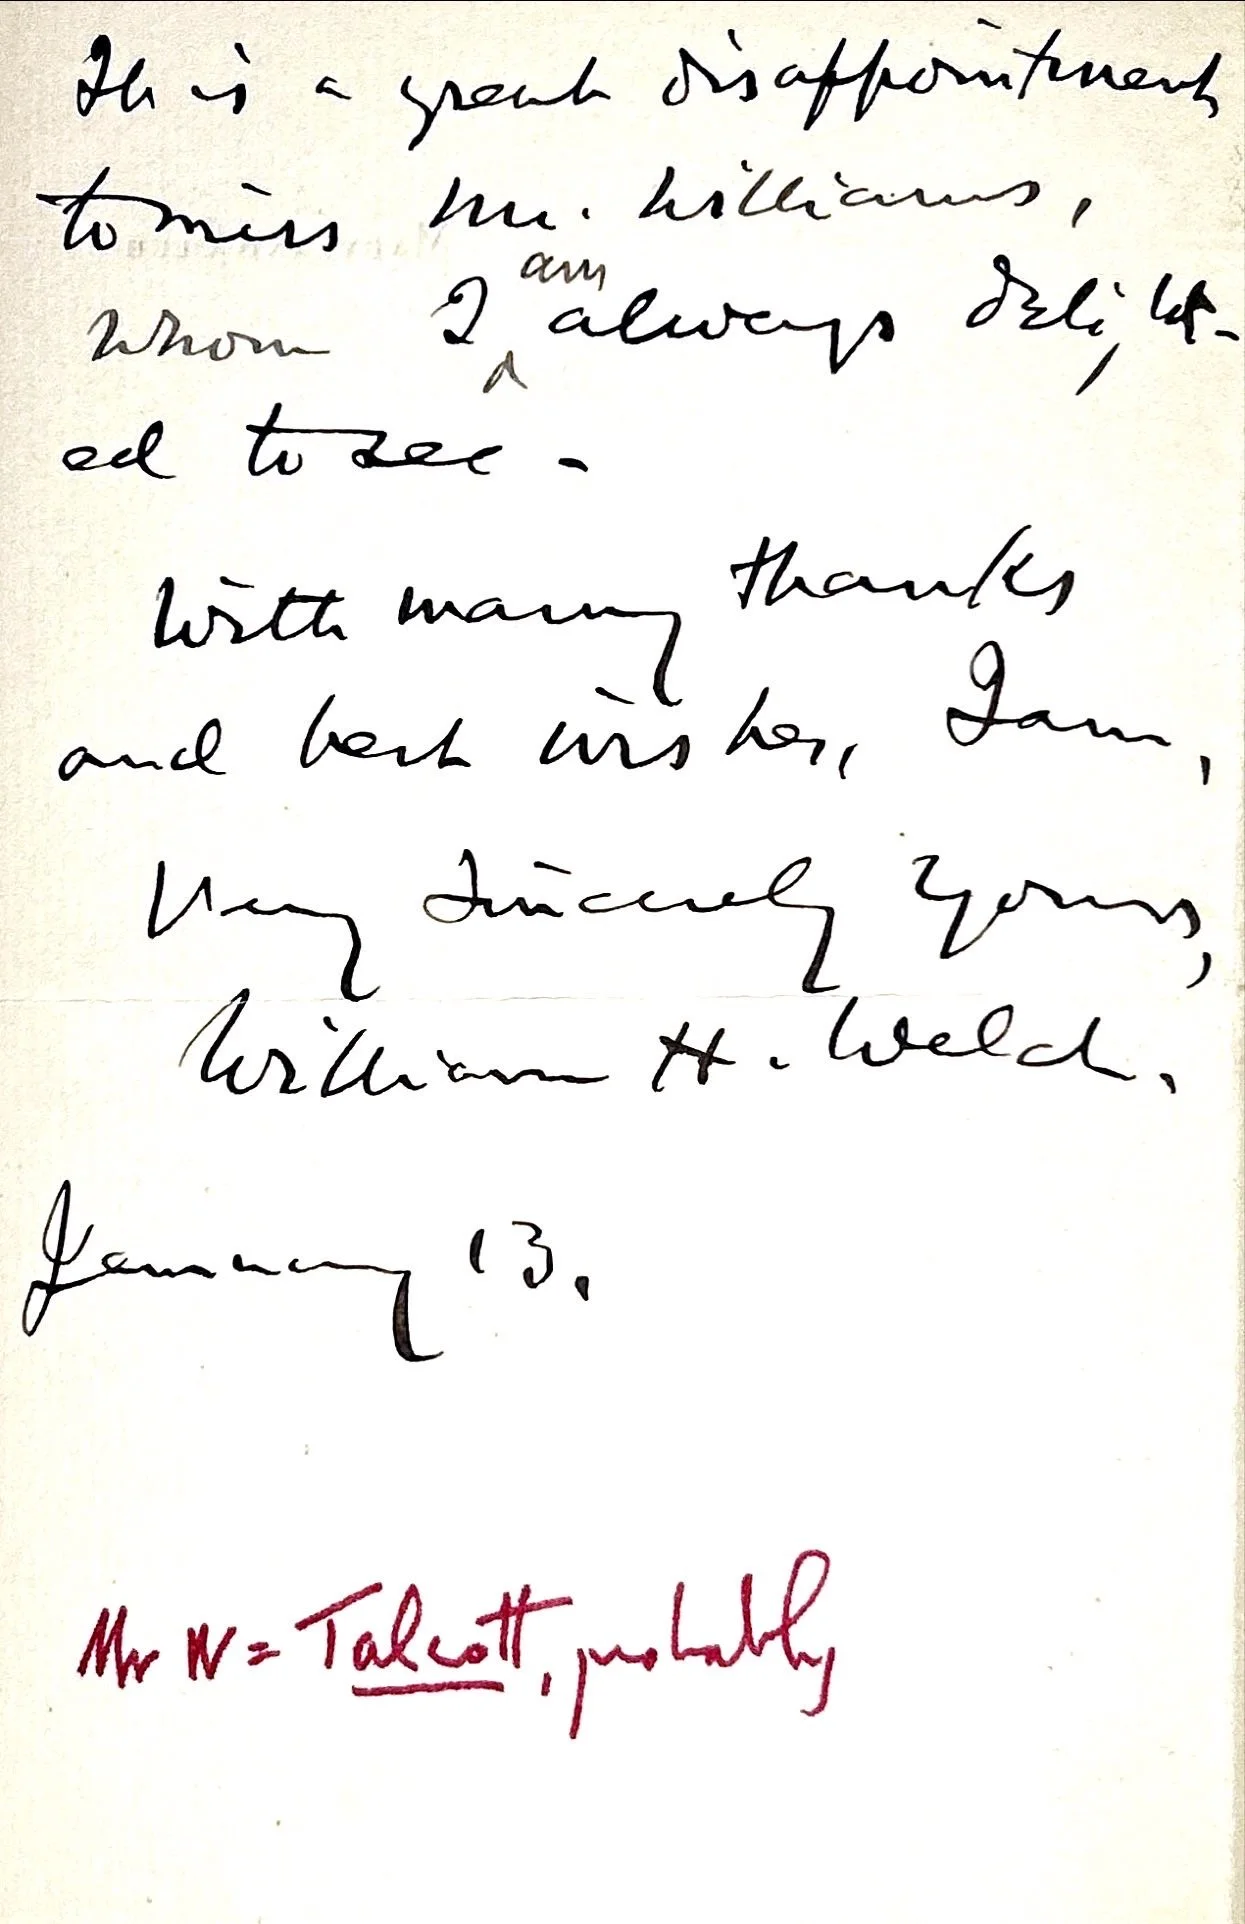 It is a great disappointment
to miss Mr. Williams,
whom I am always delight-
ed to see -
With many thanks
and best wishes, I am,
Very Sincerely Yours,
William H. Weld.
January 13.
Mr W = Talcott, probably